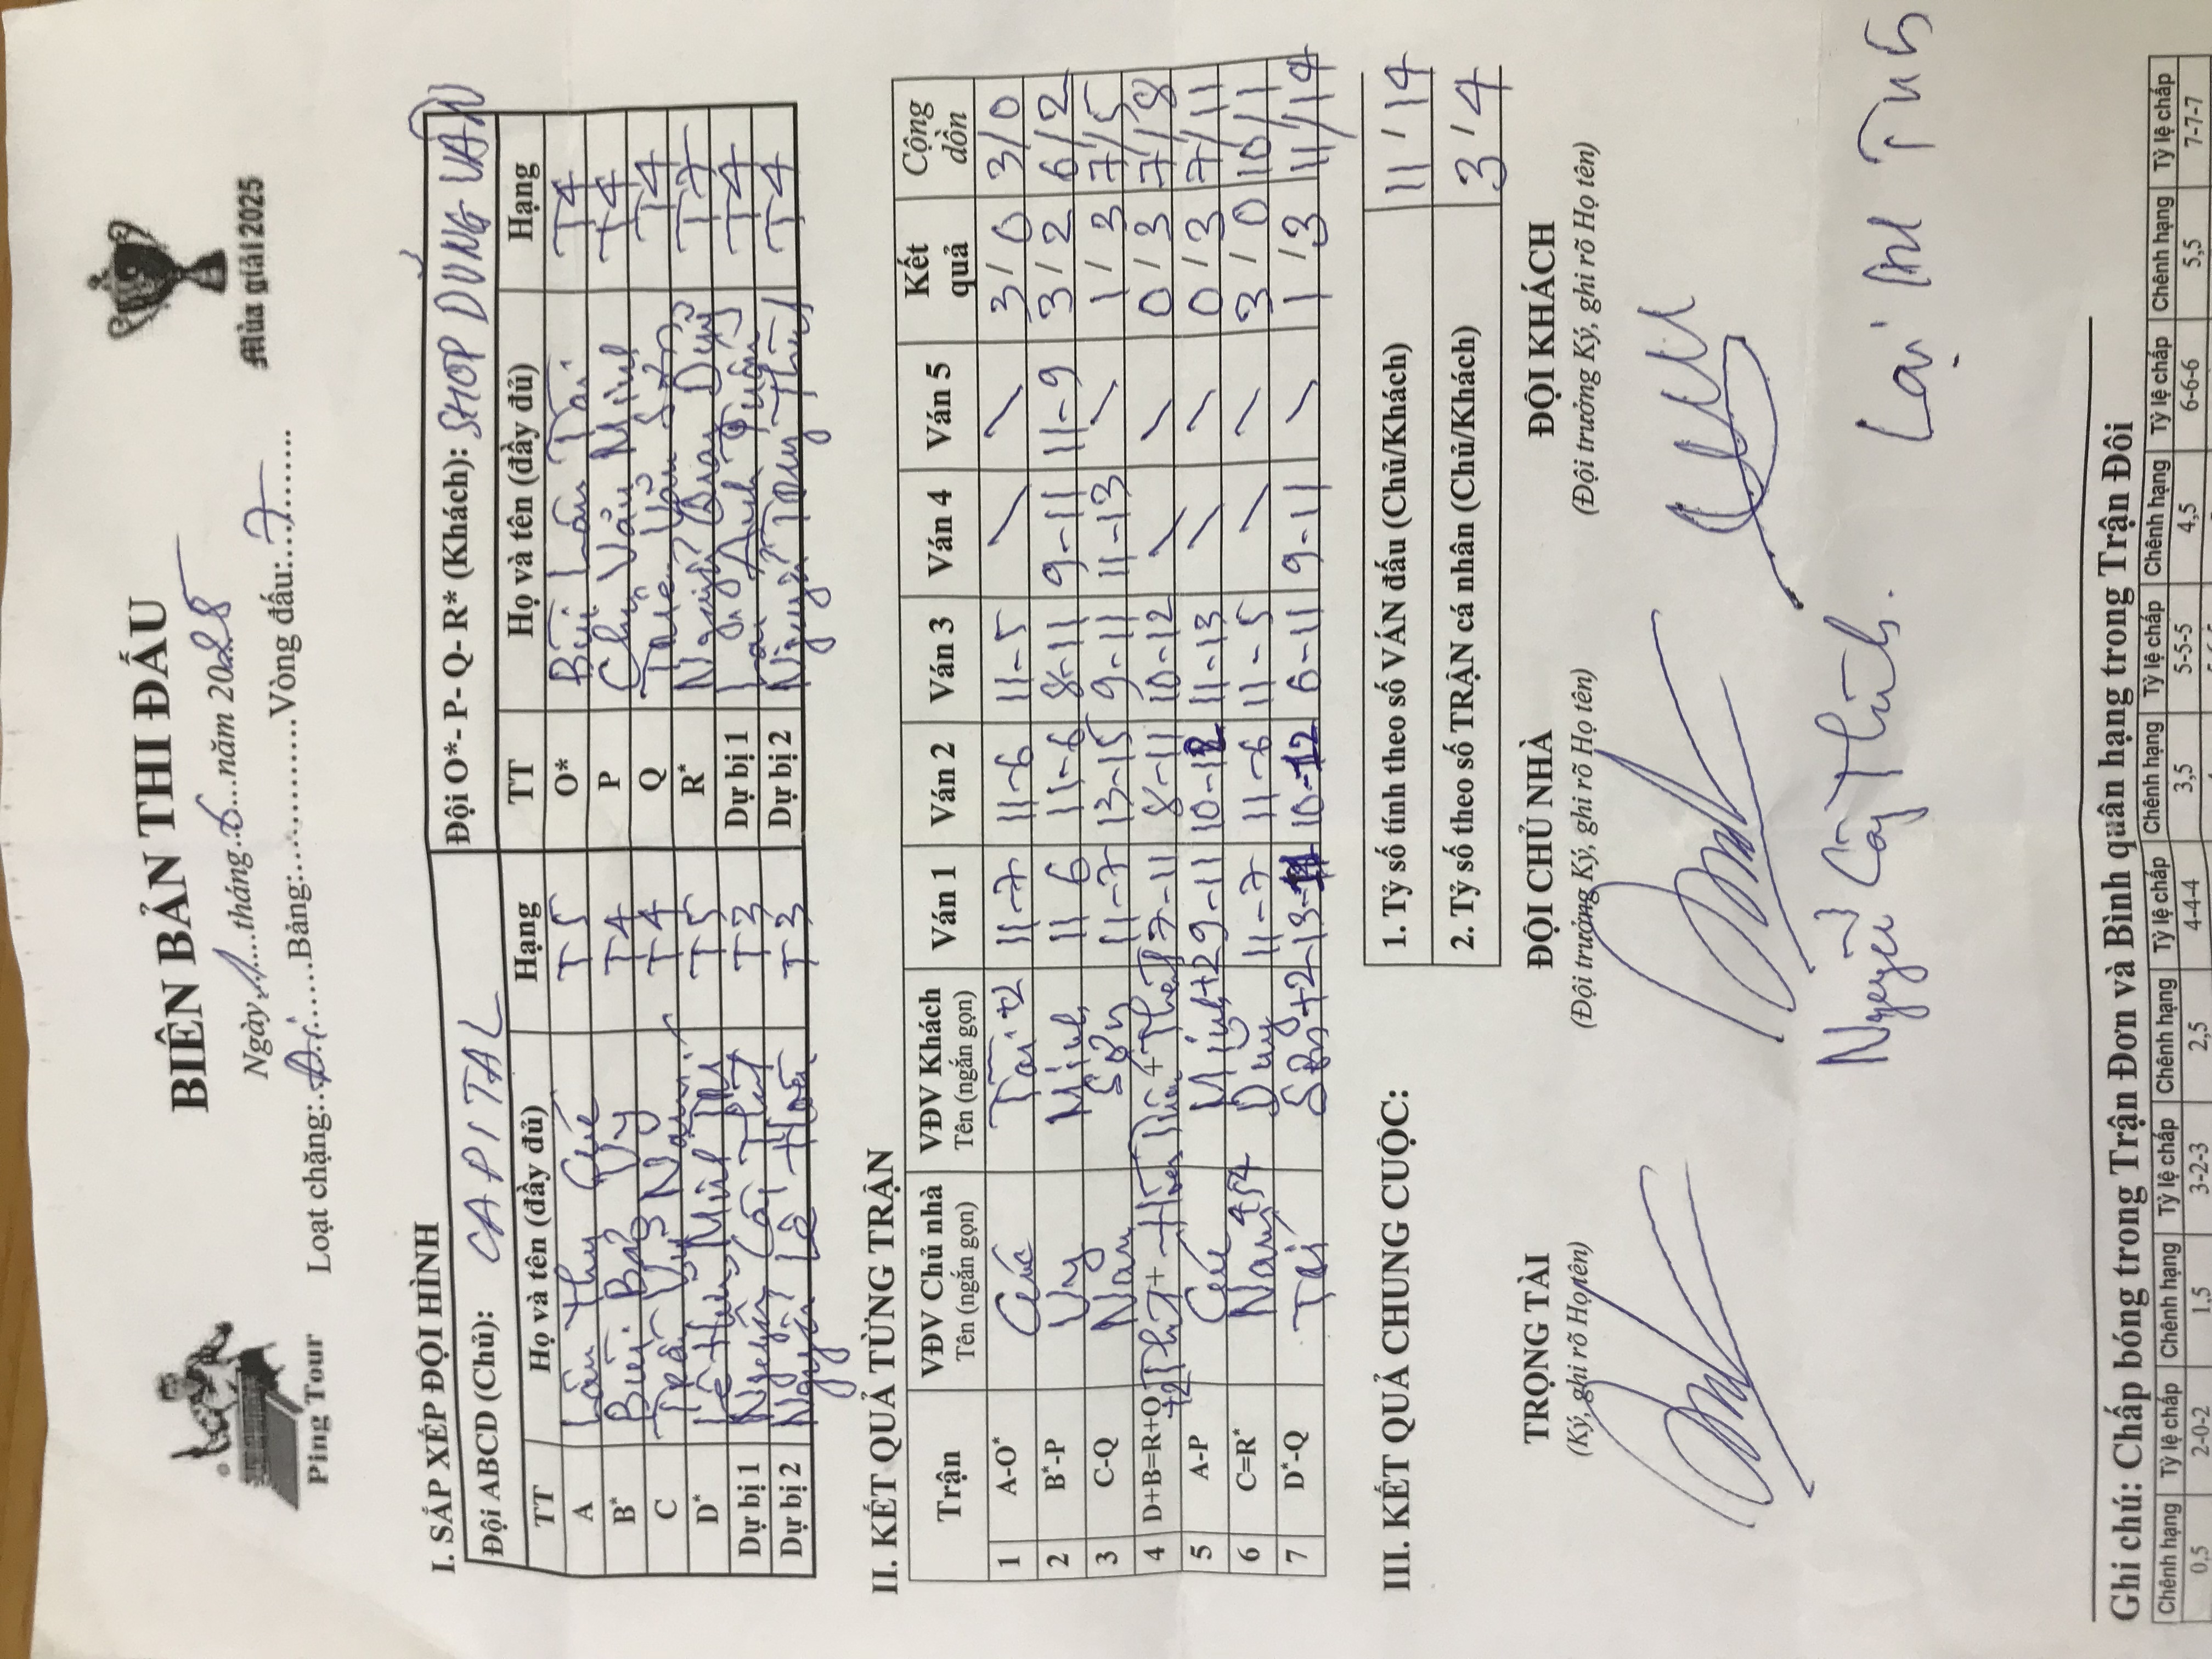 BIÊN BẢN THI ĐẤU
Ngày 1 tháng 6 năm 2025
Mùa giải 2025
Ping Tour
Loạt chặng: Bảng: Vòng đấu: 7
I. SẮP XẾP ĐỘI HÌNH
Đội ABCD (Chủ): CAPITAL Đội O*- P- Q- R* (Khách): SHOP DŨNG VÂN
TT Họ và tên (đầy đủ) Hạng TT Họ và tên (đầy đủ) Hạng
A Lâm Thu Cúc T5 O* Bùi Lâm Tài T4
B* Bùi Bá Vy T4 P Chu Văn Minh T4
C Trần Vũ Nam T4 Q Sơn T4
D* Lê Hữu Minh Tài T5 R* Nguyễn Duy T7
Dự bị 1 Nguyễn Cây T3 Dự bị 1 Lại Anh Tuấn T4
Dự bị 2 Nguyễn Lê Hoàn T3 Dự bị 2 Nguyễn Thùy T4
II. KẾT QUẢ TỪNG TRẬN
Trận VĐV Chủ nhà Tên (ngắn gọn) VĐV Khách Tên (ngắn gọn) Ván 1 Ván 2 Ván 3 Ván 4 Ván 5 Kết quả Cộng dồn
1 A-O* Cúc Tài +2 11-7 11-6 11-5 \ \ 3/0 3/0
2 B*-P Vy Minh 11 6 11-6 8-11 9-11 11-9 3/2 6/2
3 C-Q Nam Sơn 11-7 13-15 9-11 11-13 \ 1/3 7/5
4 D+B=R+O +2 7-11 8-11 10-12 \ \ 0/3 7/8
5 A-P Cúc Minh+2 9-11 10-12 11-13 \ \ 0/3 7/11
6 C=R* Nam Duy 11-7 11-6 11-5 \ \ 3/0 10/11
7 D*-Q Tài Sơn+2 13-11 10-12 6-11 9-11 \ 1/3 11/14
III. KẾT QUẢ CHUNG CUỘC:
1. Tỷ số tính theo số VÁN đấu (Chủ/Khách) 11/14
2. Tỷ số theo số TRẬN cá nhân (Chủ/Khách) 3/4
TRỌNG TÀI ĐỘI CHỦ NHÀ ĐỘI KHÁCH
(Ký, ghi rõ Họ tên) (Đội trưởng Ký, ghi rõ Họ tên) (Đội trưởng Ký, ghi rõ Họ tên)
Nguyễn Cây Lại Anh Tuấn
Ghi chú: Chấp bóng trong Trận Đơn và Bình quân hạng trong Trận Đôi
Chênh hạng Tỷ lệ chấp Chênh hạng Tỷ lệ chấp Chênh hạng Tỷ lệ chấp Chênh hạng Tỷ lệ chấp Chênh hạng Tỷ lệ chấp Chênh hạng Tỷ lệ chấp
0,5 2-0-2 1,5 3-2-3 2,5 4-4-4 3,5 5-5-5 4,5 6-6-6 5,5 7-7-7